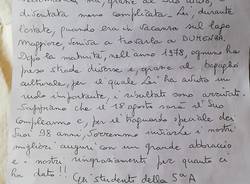 diventata meno complicata. Lei, durante
l'estate, quando era in vacanza sul lago
Maggiore, veniva a trovarla a DUMENZA.
Dopo la maturità, nell'anno 1978, ognuno ha
preso strade diverse e, grazie al bagaglio
culturale, per il quale Lei ha avuto un
ruolo importante, i risultati sono arrivati.
Sappiamo che il 18 agosto sarà il Suo
compleanno e, per il traguardo speciale dei
Suoi 98 anni, vorremmo inviarle i nostri
migliori auguri con un grande abbraccio
e i nostri ringraziamenti per quanto ci
ha dato!! Gli studenti della 5ª A